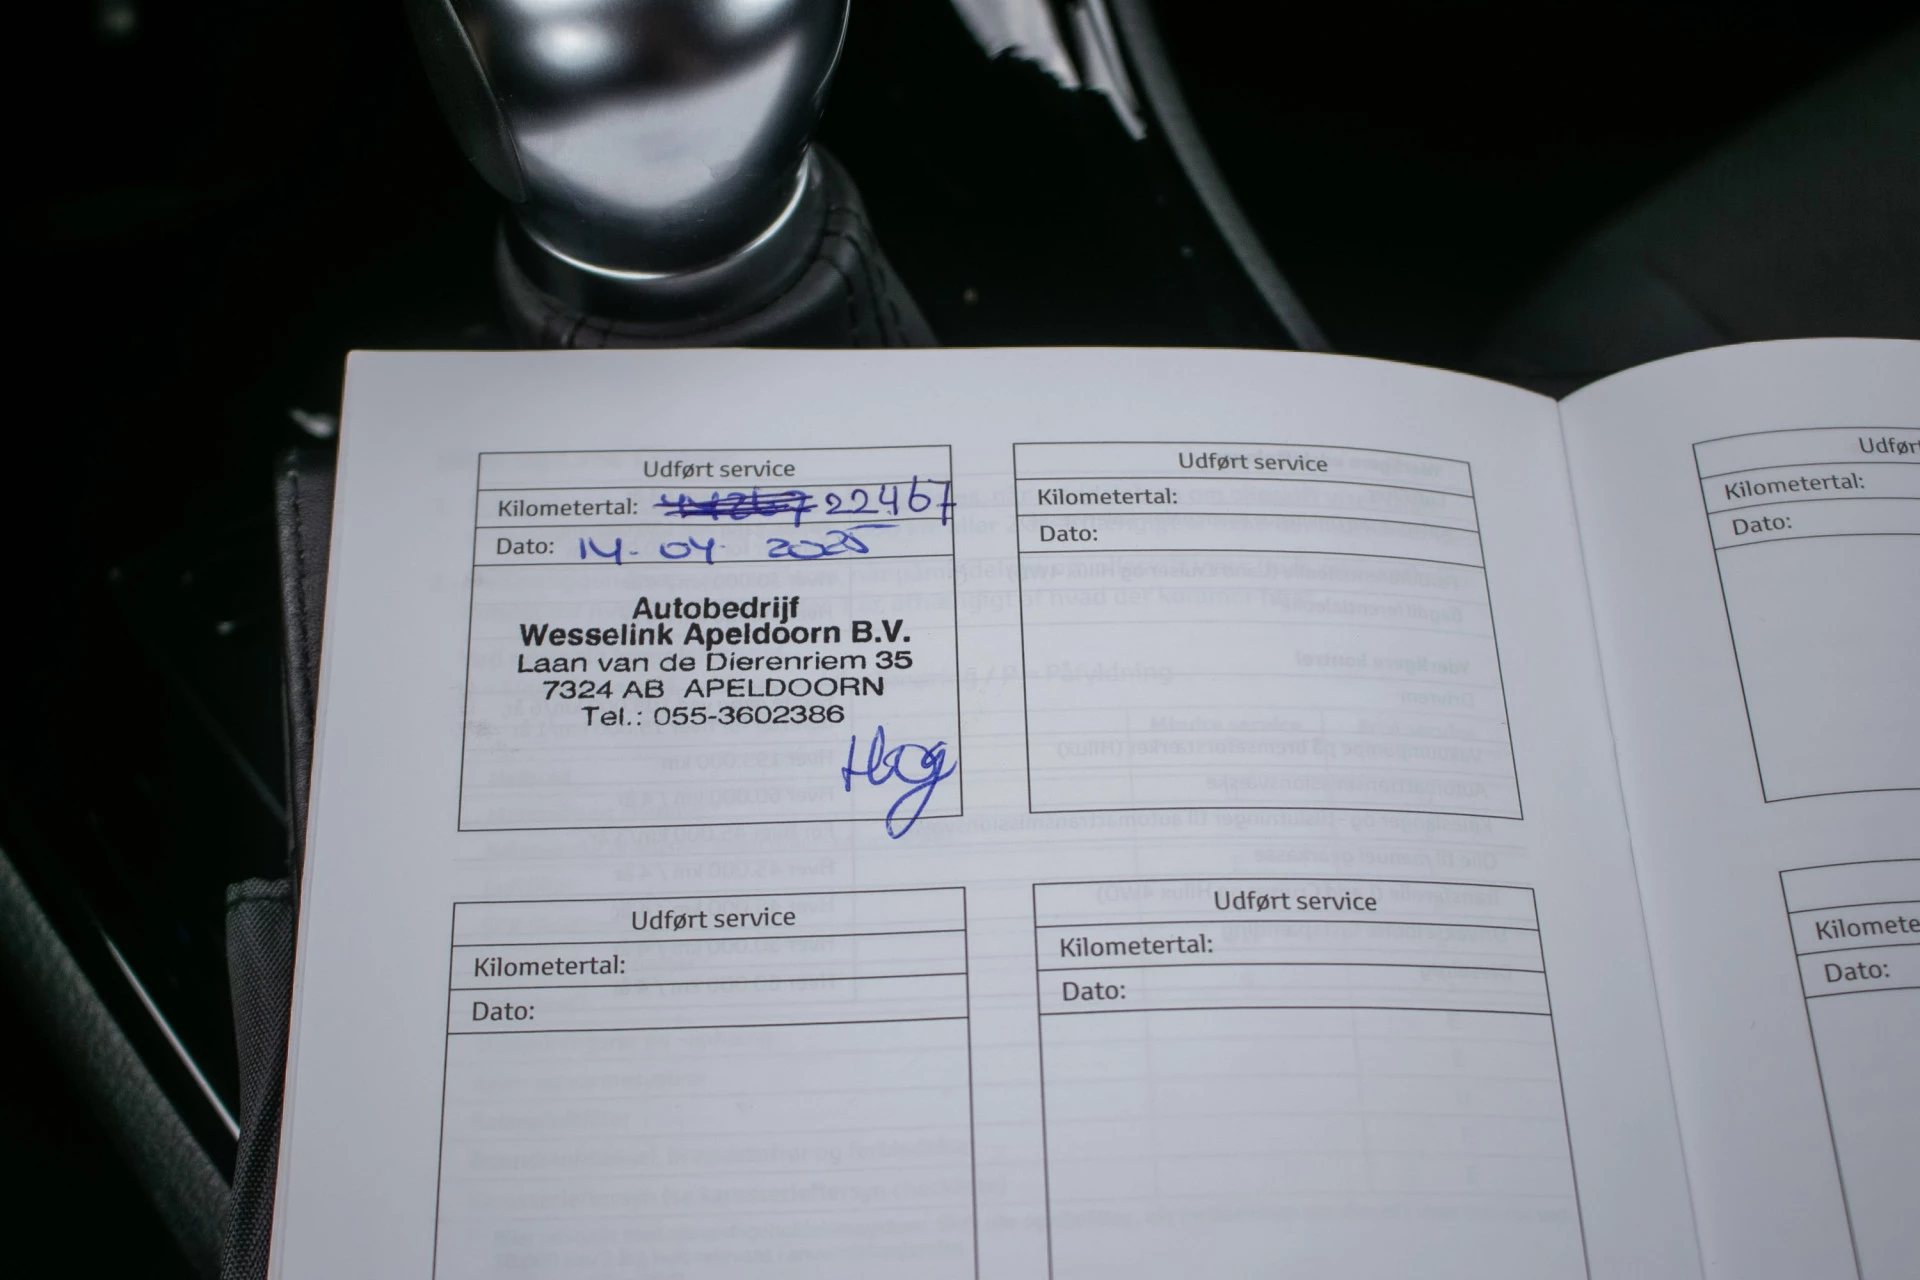 Udført service
Kilometertal: 22467
Dato: 14-04-2025
Autobedrijf
Wesselink Apeldoorn B.V.
Laan van de Dierenriem 35
7324 AB APELDOORN
Tel.: 055-3602386
Udført service
Kilometertal:
Dato:
Udført service
Kilometertal:
Dato:
Udført service
Kilometertal:
Dato:
Udfør
Kilometertal:
Dato:
Kilomete
Dato: